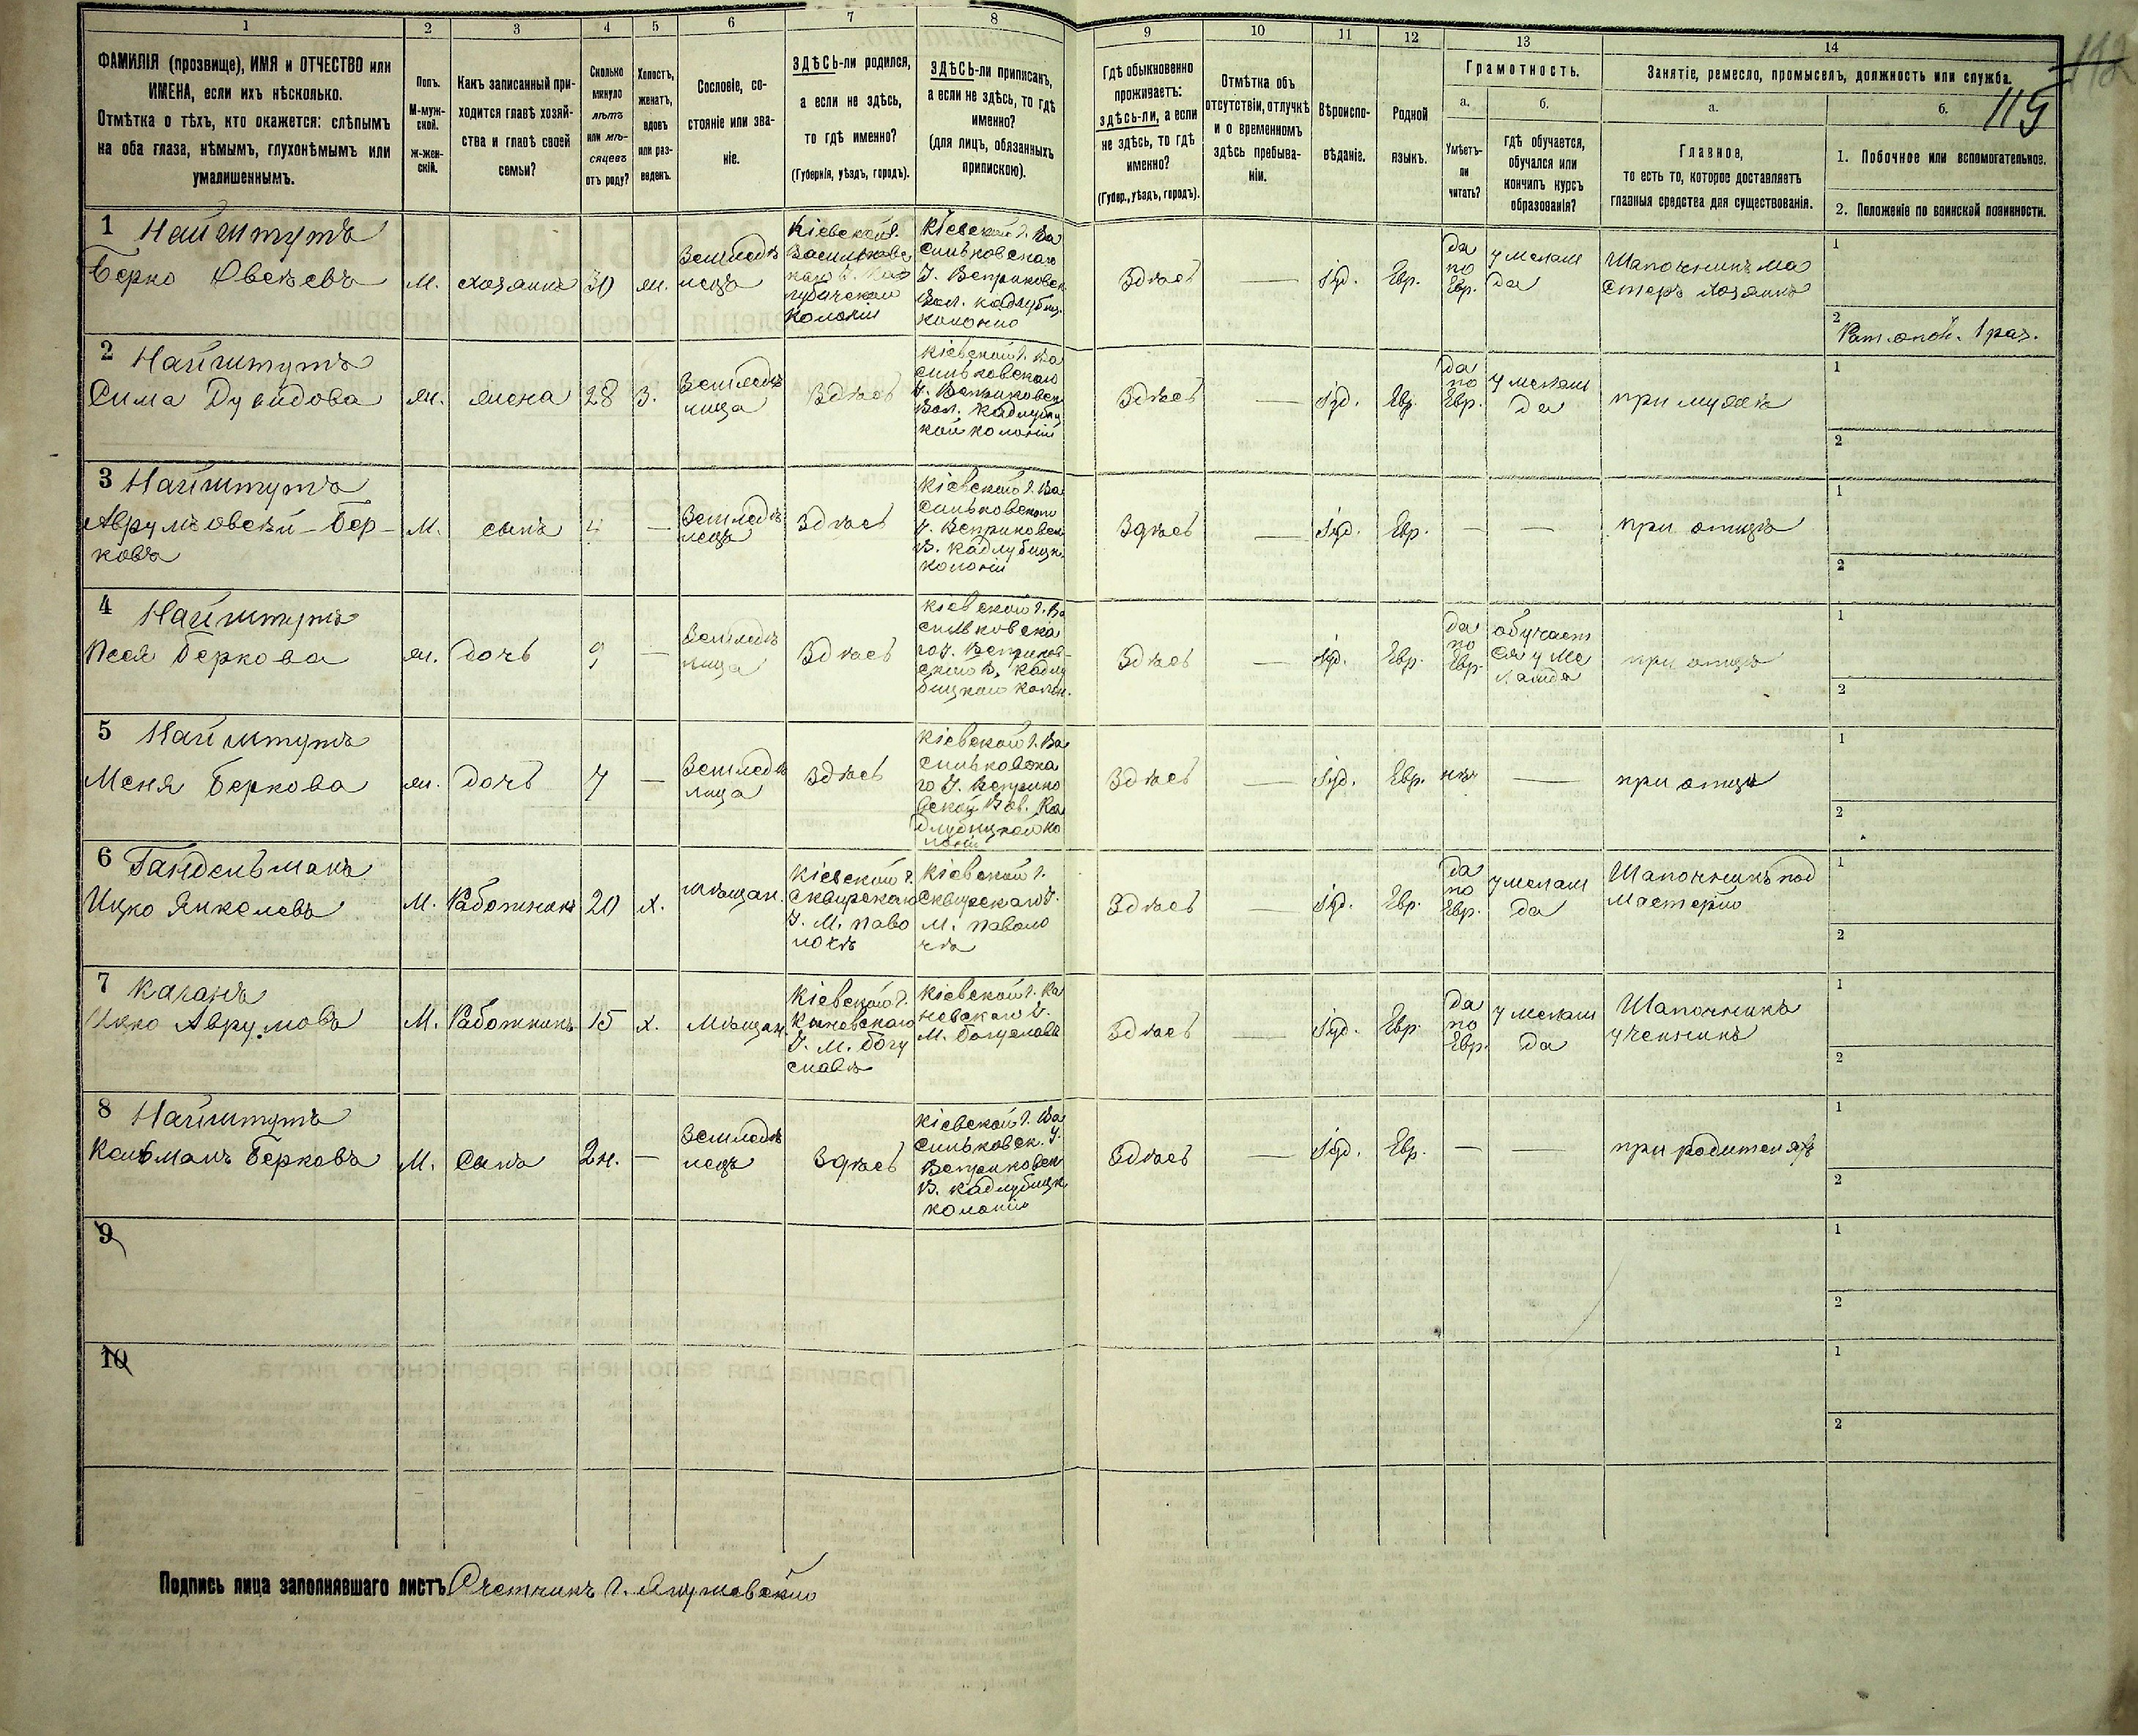 1 2 3 4 5 6 7 8 9 10 11 12 13 14
ФАМИЛІЯ (прозвище), ИМЯ и ОТЧЕСТВО или
ИМЕНА, если ихъ нѣсколько.
Отмѣтка о тѣхъ, кто окажется: слѣпымъ
на оба глаза, нѣмымъ, глухонѣмымъ или
умалишеннымъ.
Полъ.
М-муж-
ской.
Ж-жен-
скій.
Какъ записанный при-
ходится главѣ хозяй-
ства и главѣ своей
семьи?
Сколько
минуло
лѣтъ
или мѣ-
сяцевъ
отъ роду?
Холостъ,
женатъ,
вдовъ
или раз-
веденъ.
Сословіе, со-
стояніе или зва-
ніе.
ЗДѢСЬ-ли родился,
а если не здѣсь,
то гдѣ именно?
(Губернія, уѣздъ, городъ).
ЗДѢСЬ-ли приписанъ,
а если не здѣсь, то гдѣ
именно?
(для лицъ, обязанныхъ
припискою).
Гдѣ обыкновенно
проживаетъ:
здѣсь-ли, а если
не здѣсь, то гдѣ
именно?
(Губер., уѣздъ, городъ).
Отмѣтка объ
отсутствіи, отлучкѣ
и о временномъ
здѣсь пребыва-
ніи.
Вѣроиспо-
вѣданіе.
Родной
языкъ.
Грамотность.
а.
Умѣетъ-
ли
читать?
б.
Гдѣ обучается,
обучался или
кончилъ курсъ
образованія?
Занятіе, ремесло, промыселъ, должность или служба.
а.
Главное,
то есть то, которое доставляетъ
главныя средства для существованія.
б.
1. Побочное или вспомогательное.
2. Положеніе по воинской повинности.
112
115
1 Найштутъ
Берко Овсѣевъ
М.
хозяинъ
30
ж.
Земледѣ
лецъ
Кіевской г.
Васильковс
каго У.
колоніи
Кіевской г. Ва
сильковскаго
У. Веприковск
Вол. Кадлубиц.
колонію
Здѣсь
—
Іуд.
Евр.
да
по
Евр.
у мелам
да
Шапочникъ ма
стеръ хозяинъ
1
2
Рат. опол. 1 раз.
2 Найштутъ
Сима Дувидова
ж.
жена
28
З.
Земледѣ
лица
Здѣсь
Кіевской г. Ва
сильковскаго
У. Веприковск
Вол. Кадлубиц
кой колоніи
Здѣсь
—
Іуд.
Евр.
да
по
Евр.
у мелам
да
при мужѣ
1
2
3 Найштутъ
Аврумъ Овсѣй-Бер-
ковъ
М.
сынъ
4
—
Земледѣ
лецъ
Здѣсь
Кіевской г. Ва
сильковскаго
У. Веприковск
В. Кадлубицк.
колоніи
Здѣсь
—
Іуд.
Евр.
—
—
при отцѣ
1
2
4 Найштутъ
Песя Беркова
ж.
дочь
9
—
Земледѣ
лица
Здѣсь
Кіевской г. Ва
сильковска
го У. Веприков-
ской В. Кадлу
бицкой колон.
Здѣсь
—
Іуд.
Евр.
да
по
Евр.
обучает
ся у ме
ламда
при отцѣ
1
2
5 Найштутъ
Меня Беркова
ж.
дочь
7
—
Земледѣ
лица
Здѣсь
Кіевской г. Ва
сильковска
го У. Веприко
вской Вол. Ка
длубицкой ко
лоніи
Здѣсь
—
Іуд.
Евр.
нѣт
—
при отцѣ
1
2
6 Гандельманъ
Ицко Янкелевъ
М.
Работникъ
20
х.
мѣщан.
Кіевской г.
Сквирскаго
У. М. Паво
лочѣ
Кіевской г.
Сквирскаго У.
М. Паволо
чѣ
Здѣсь
—
Іуд.
Евр.
да
по
Евр.
у мелам
да
Шапочникъ под
мастерію
1
2
7 Каганъ
Ицко Аврумовъ
М.
Работникъ
15
х.
Мѣщан.
Кіевской г.
Каневскаго
У. М. Богу
славѣ
Кіевской г. Ка
невскаго У.
М. Богуславѣ
Здѣсь
—
Іуд.
Евр.
да
по
Евр.
у мелам
да
Шапочникъ
ученикъ
1
2
8 Найштутъ
Кельманъ Берковъ
М.
Сынъ
2н.
—
Земледѣ
лецъ
Здѣсь
Кіевской г. Ва
сильковск. У.
Веприковск
В. Кадлубицк
колоніи
Здѣсь
—
Іуд.
Евр.
—
—
при родителяхъ
1
2
9
1
2
10
1
2
Подпись лица заполнявшаго листъ Счетчикъ